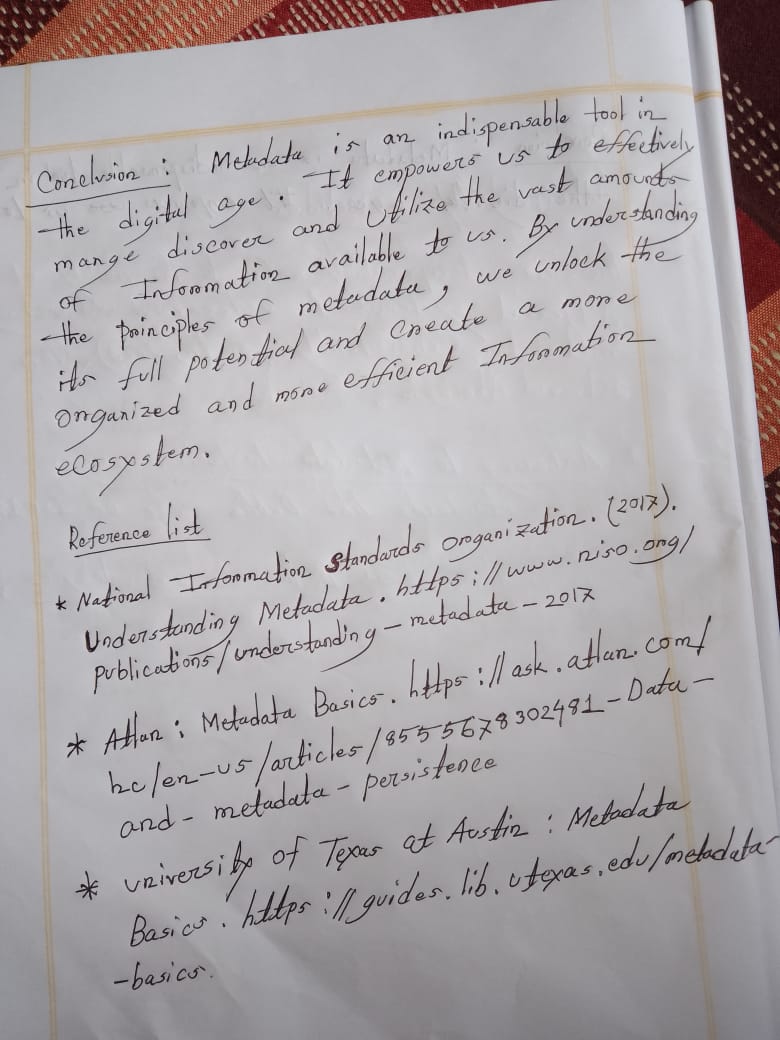 Conclusion : Metadata is an indispensable tool in
the digital age. It empowers us to effectively
mange discover and Utilize the vast amounts
of Information available to us. By understanding
the principles of metadata, we unlock the
its full potential and create a more
organized and more efficient Information
ecosystem.
Reference list
* National Information Standards organization. (2017).
Understanding Metadata. https://www.niso.org/
publications/understanding-metadata-2017
* Atlan : Metadata Basics. https://ask.atlan.com/
hc/en-us/articles/8555678302481-Data-
and-metadata-persistence
* university of Texas at Austin : Metadata
Basics. https://guides.lib.utexas.edu/metadata-
-basics.